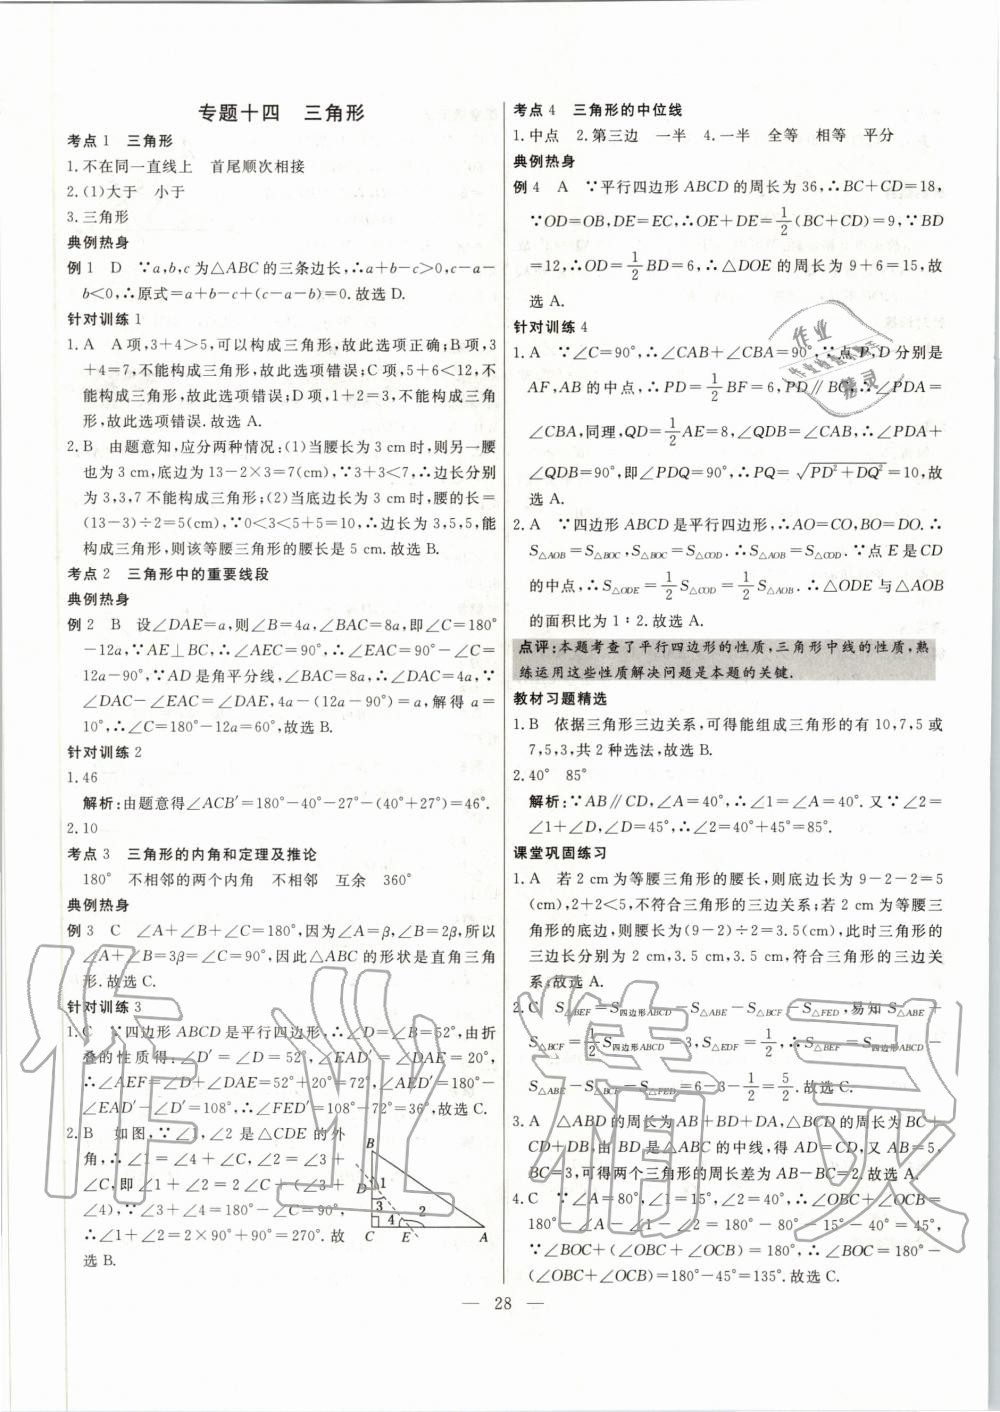 专题十四　三角形
考点 1　三角形
1.不在同一直线上　首尾顺次相接
2.(1)大于　小于
3.三角形
典例热身
例 1　D　∵a,b,c 为△ABC 的三条边长,∴a+b-c>0,c-a-
b<0,∴原式=a+b-c+(c-a-b)=0.故选 D.
针对训练 1
1.A　A 项,3+4>5,可以构成三角形,故此选项正确;B 项,3
+4=7,不能构成三角形,故此选项错误;C 项,5+6<12,不
能构成三角形,故此选项错误;D 项,1+2=3,不能构成三角
形,故此选项错误.故选 A.
2.B　由题意知,应分两种情况:(1)当腰长为 3 cm 时,则另一腰
也为 3 cm,底边为 13-2×3=7(cm),∵3+3<7,∴边长分别
为 3,3,7 不能构成三角形;(2)当底边长为 3 cm 时,腰的长=
(13-3)÷2=5(cm),∵0<3<5+5=10,∴边长为 3,5,5,能
构成三角形,则该等腰三角形的腰长是 5 cm.故选 B.
考点 2　三角形中的重要线段
典例热身
例 2　B　设∠DAE=a,则∠B=4a,∠BAC=8a,即∠C=180°
-12a,∵AE⊥BC,∴∠EAC=90°-∠C=
12a-90°,∵AD 是角平分线,∠BAC=8a,∴∠DAC=4a,∵
∠DAC-∠EAC=∠DAE,4a-(12a-90°)=a,解得 a=
10°,∴∠C=180°-12a=60°,故选 B.
针对训练 2
1.46
解析:由题意得∠ACB′=180°-40°-27°-(40°+27°)=46°.
2.10
考点 3　三角形的内角和定理及推论
180°　不相邻的两个内角　不相邻　互余　360°
典例热身
例 3　C　∠A+∠B+∠C=180°,因为∠A=β,∠B=2β,所以
∠A+∠B=3β=∠C=90°,因此△ABC 的形状是直角三角
形.故选 C.
针对训练 3
1.C　∵四边形 ABCD 是平行四边形,∴∠D=∠B=52°,由折
叠的性质得:∠D′=∠D=52°,∠EAD′=∠DAE=20°,
∴∠AEF=∠D+∠DAE=52°+20°=72°,∠AED′=180°-
∠EAD′-∠D′=108°,∴∠FED′=108°-72°=36°,故选 C.
2.B　如图,∵∠1,∠2 是△CDE 的外
角,∴∠1=∠C+∠4,∠2=∠3+
∠C,即∠1+∠2=∠C+(∠C+∠3+
∠4),∵∠3+∠4=180°-∠C=90°,
∴∠1+∠2=2×90°+90°=270°.故
选 B.
B
D
1
3
4
2
C
E
A
考点 4　三角形的中位线
1.中点　2.第三边　一半　4.一半　全等　相等　平分
典例热身
例 4　A　∵平行四边形 ABCD 的周长为 36,∴BC+CD=18,
∵OD=OB,DE=EC,∴OE+DE=1/2(BC+CD)=9,∵BD
=12,∴OD=1/2BD=6,∴△DOE 的周长为 9+6=15,故
选 A.
针对训练 4
1.A　∵∠C=90°,∴∠CAB+∠CBA=90°,∵点 P,D 分别是
AF,AB 的中点,∴PD=1/2BF=6,PD∥BC,∴∠PDA=
∠CBA,同理,QD=1/2AE=8,∠QDB=∠CAB,∴∠PDA+
∠QDB=90°,即∠PDQ=90°,∴PQ=√(PD²+DQ²)=10,故
选 A.
2.A　∵四边形 ABCD 是平行四边形,∴AO=CO,BO=DO.∴
S△AOB=S△BOC,S△BOC=S△COD.∴S△AOB=S△COD.∵点 E 是 CD
的中点,∴S△ODE=1/2S△COD=1/2S△AOB.∴△ODE 与△AOB
的面积比为 1∶2.故选 A.
点评:本题考查了平行四边形的性质,三角形中线的性质,熟
练运用这些性质解决问题是本题的关键.
教材习题精选
1.B　依据三角形三边关系,可得能组成三角形的有 10,7,5 或
7,5,3,共 2 种选法,故选 B.
2.40°　85°
解析:∵AB∥CD,∠A=40°,∴∠1=∠A=40°.又∵∠2=
∠1+∠D,∠D=45°,∴∠2=40°+45°=85°.
课堂巩固练习
1.A　若 2 cm 为等腰三角形的腰长,则底边长为 9-2-2=5
(cm),2+2<5,不符合三角形的三边关系;若 2 cm 为等腰三
角形的底边,则腰长为(9-2)÷2=3.5(cm),此时三角形的
三边长分别为 2 cm,3.5 cm,3.5 cm,符合三角形的三边关
系;故选 A.
2.C　S△BEF=S四边形ABCD-S△ABE-S△BCF-S△FED,易知 S△ABE+
S△BCF=1/2S四边形ABCD=3,S△EDF=1/2,∴S△BEF=S四边形ABCD-
S△ABE-S△BCF-S△FED=6-3-1/2=5/2.故选 C.
3.A　△ABD 的周长为 AB+BD+DA,△BCD 的周长为 BC+
CD+DB,由 BD 是△ABC 的中线,得 CD=AD,又 AB=5,
BC=3,可得两个三角形的周长差为 AB-BC=2.故选 A.
4.C　∵∠A=80°,∠1=15°,∠2=40°,∴∠OBC+∠OCB=
180°-∠A-∠1-∠2=180°-80°-15°-40°=45°,
∵∠BOC+(∠OBC+∠OCB)=180°,∴∠BOC=180°-
(∠OBC+∠OCB)=180°-45°=135°.故选 C.
— 28 —
作业
精灵
作业精灵